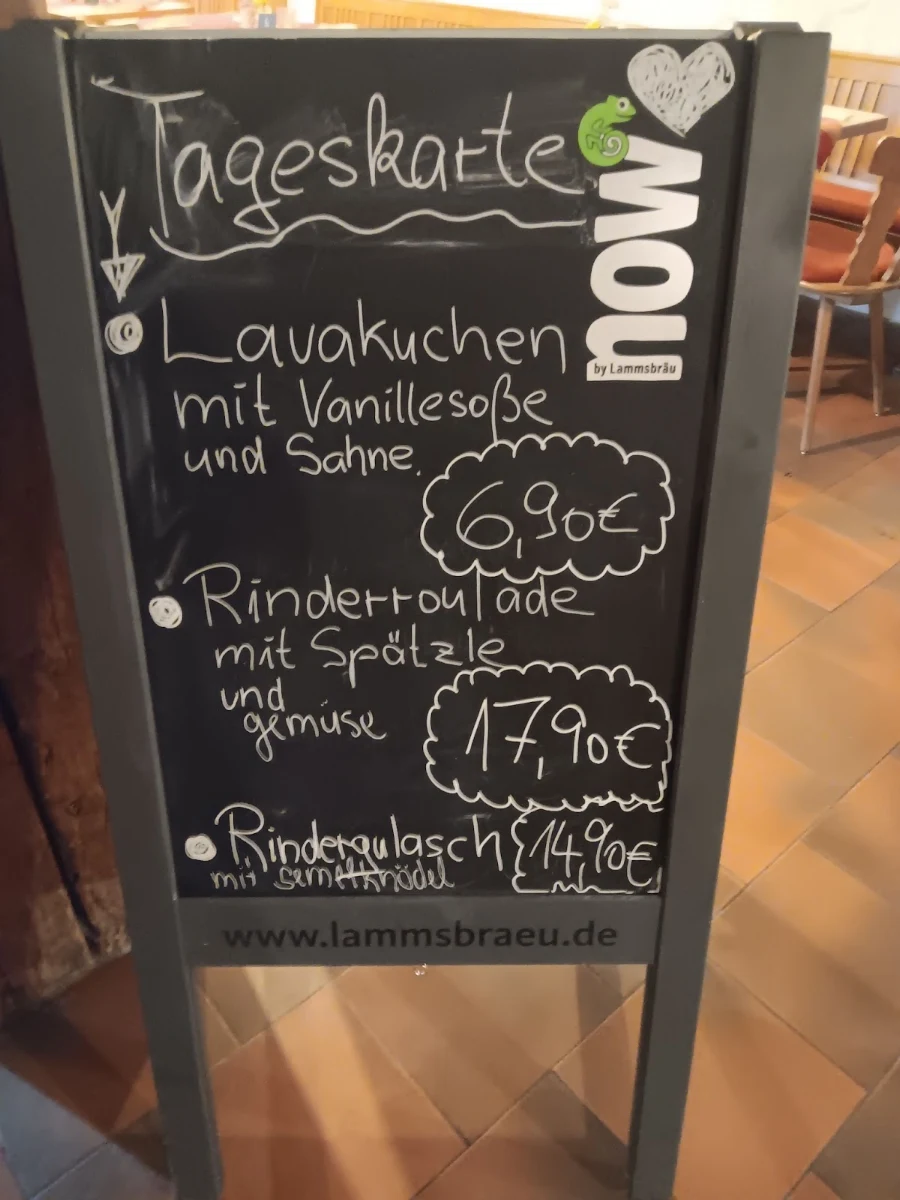 Tageskarte
now
by Lammsbräu
Lavakuchen
mit Vanillesoße
und Sahne.
6,90€
Rinderroulade
mit Spätzle
und
gemüse
17,90€
Rindergulasch 14,90€
mit Semelknödel
www.lammsbraeu.de